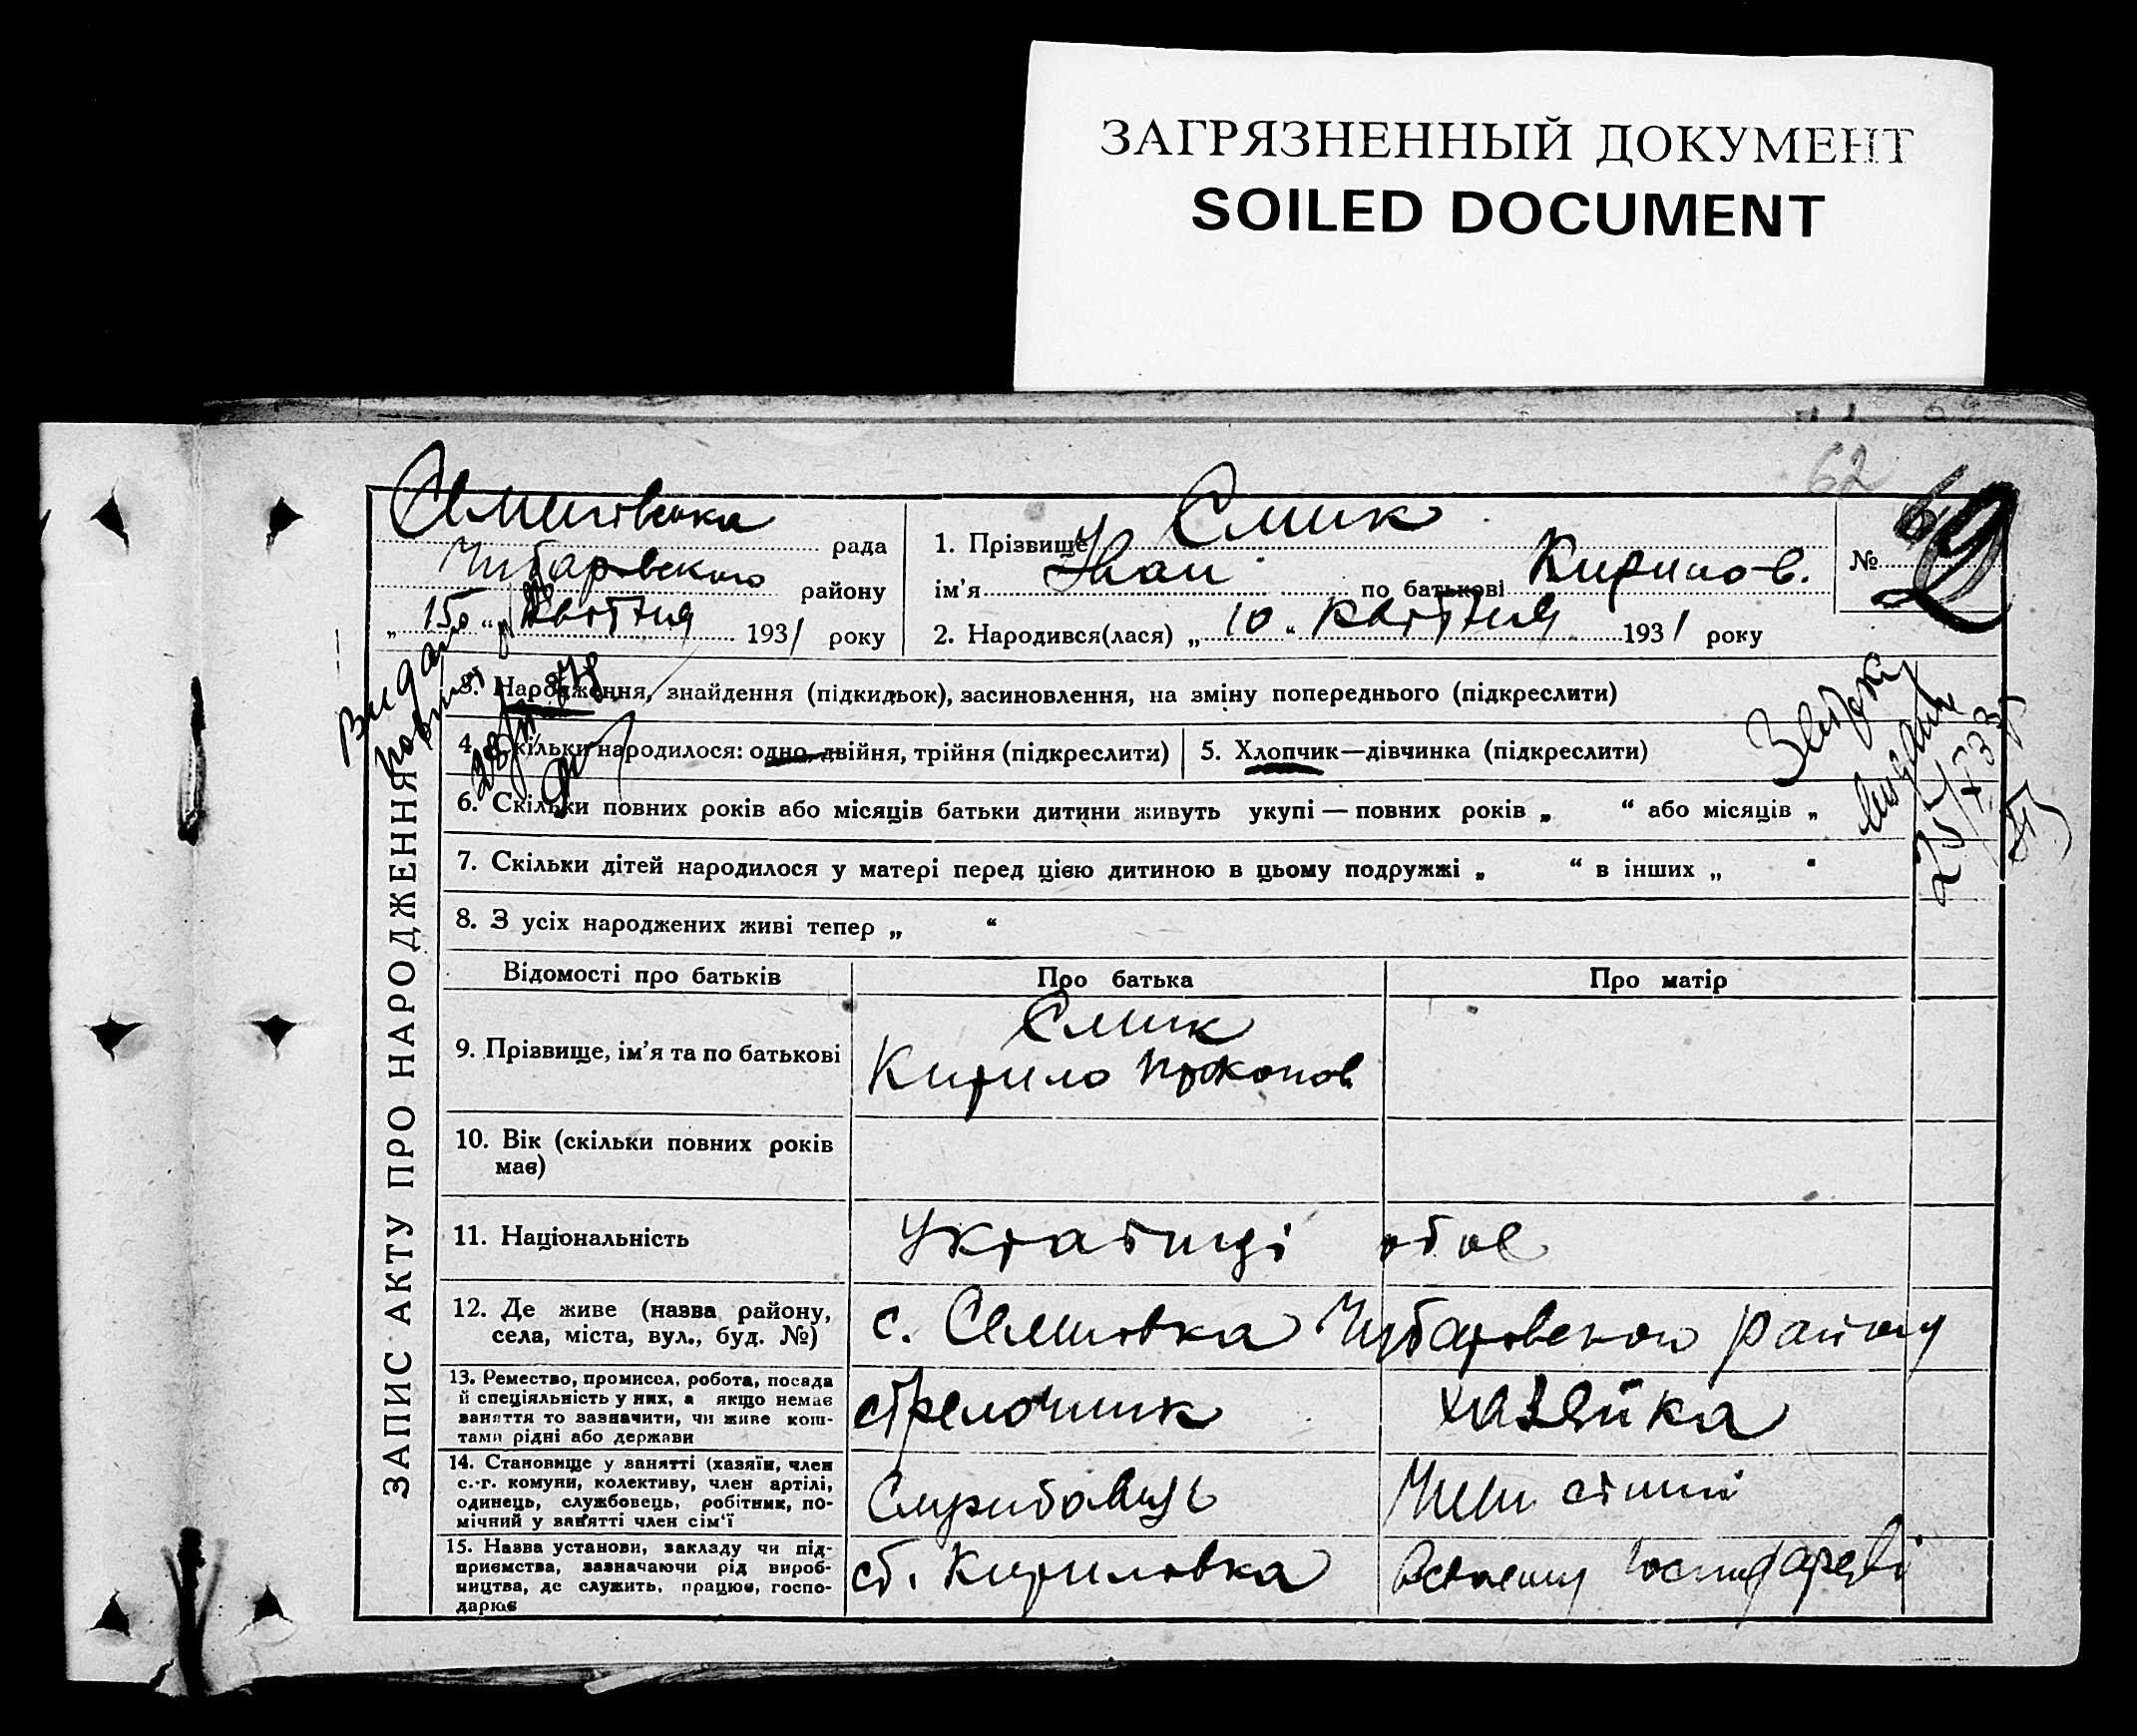 ЗАГРЯЗНЕННЫЙ ДОКУМЕНТ
SOILED DOCUMENT
62
рада
Чубаровского району
„ 15 “ квітня 1931 року
1. Прізвище Смик
ім’я Іван по батькові Кирилов.
2. Народився(лася) „ 10 “ квітня 1931 року
№ 62
ЗАПИС АКТУ ПРО НАРОДЖЕННЯ
3. Народження, знайдення (підкидьок), засиновлення, на зміну попереднього (підкреслити)
4. Скільки народилося: одно, двійня, трійня (підкреслити)
5. Хлопчик—дівчинка (підкреслити)
6. Скільки повних років або місяців батьки дитини живуть укупі — повних років „ “ або місяців „
7. Скільки дітей народилося у матері перед цією дитиною в цьому подружжі „ “ в інших „ “
8. З усіх народжених живі тепер „ “
Відомості про батьків Про батька Про матір
9. Прізвище, ім’я та по батькові
Смик
Кирило Прокопов
10. Вік (скільки повних років
має)
11. Національність Українці обоє
12. Де живе (назва району,
села, міста, вул., буд. №)
с. Семиовка Чубаровского району
13. Ремество, промисел, робота, посада
й спеціяльність у них, а якщо немає
заняття то зазначити, чи живе кош-
тами рідні або держави
стрелочник хазяйка
14. Становище у занятті (хазяїн, член
с.-г. комуни, колективу, член артілі,
одинець, службовець, робітник, по-
мічний у занятті член сім’ї
Службовець Член сімьї
15. Назва установи, закладу чи під-
приємства, зазначаючи рід вироб-
ництва, де служить, працює, госпо-
дарює
ст. Кириловка господарстві